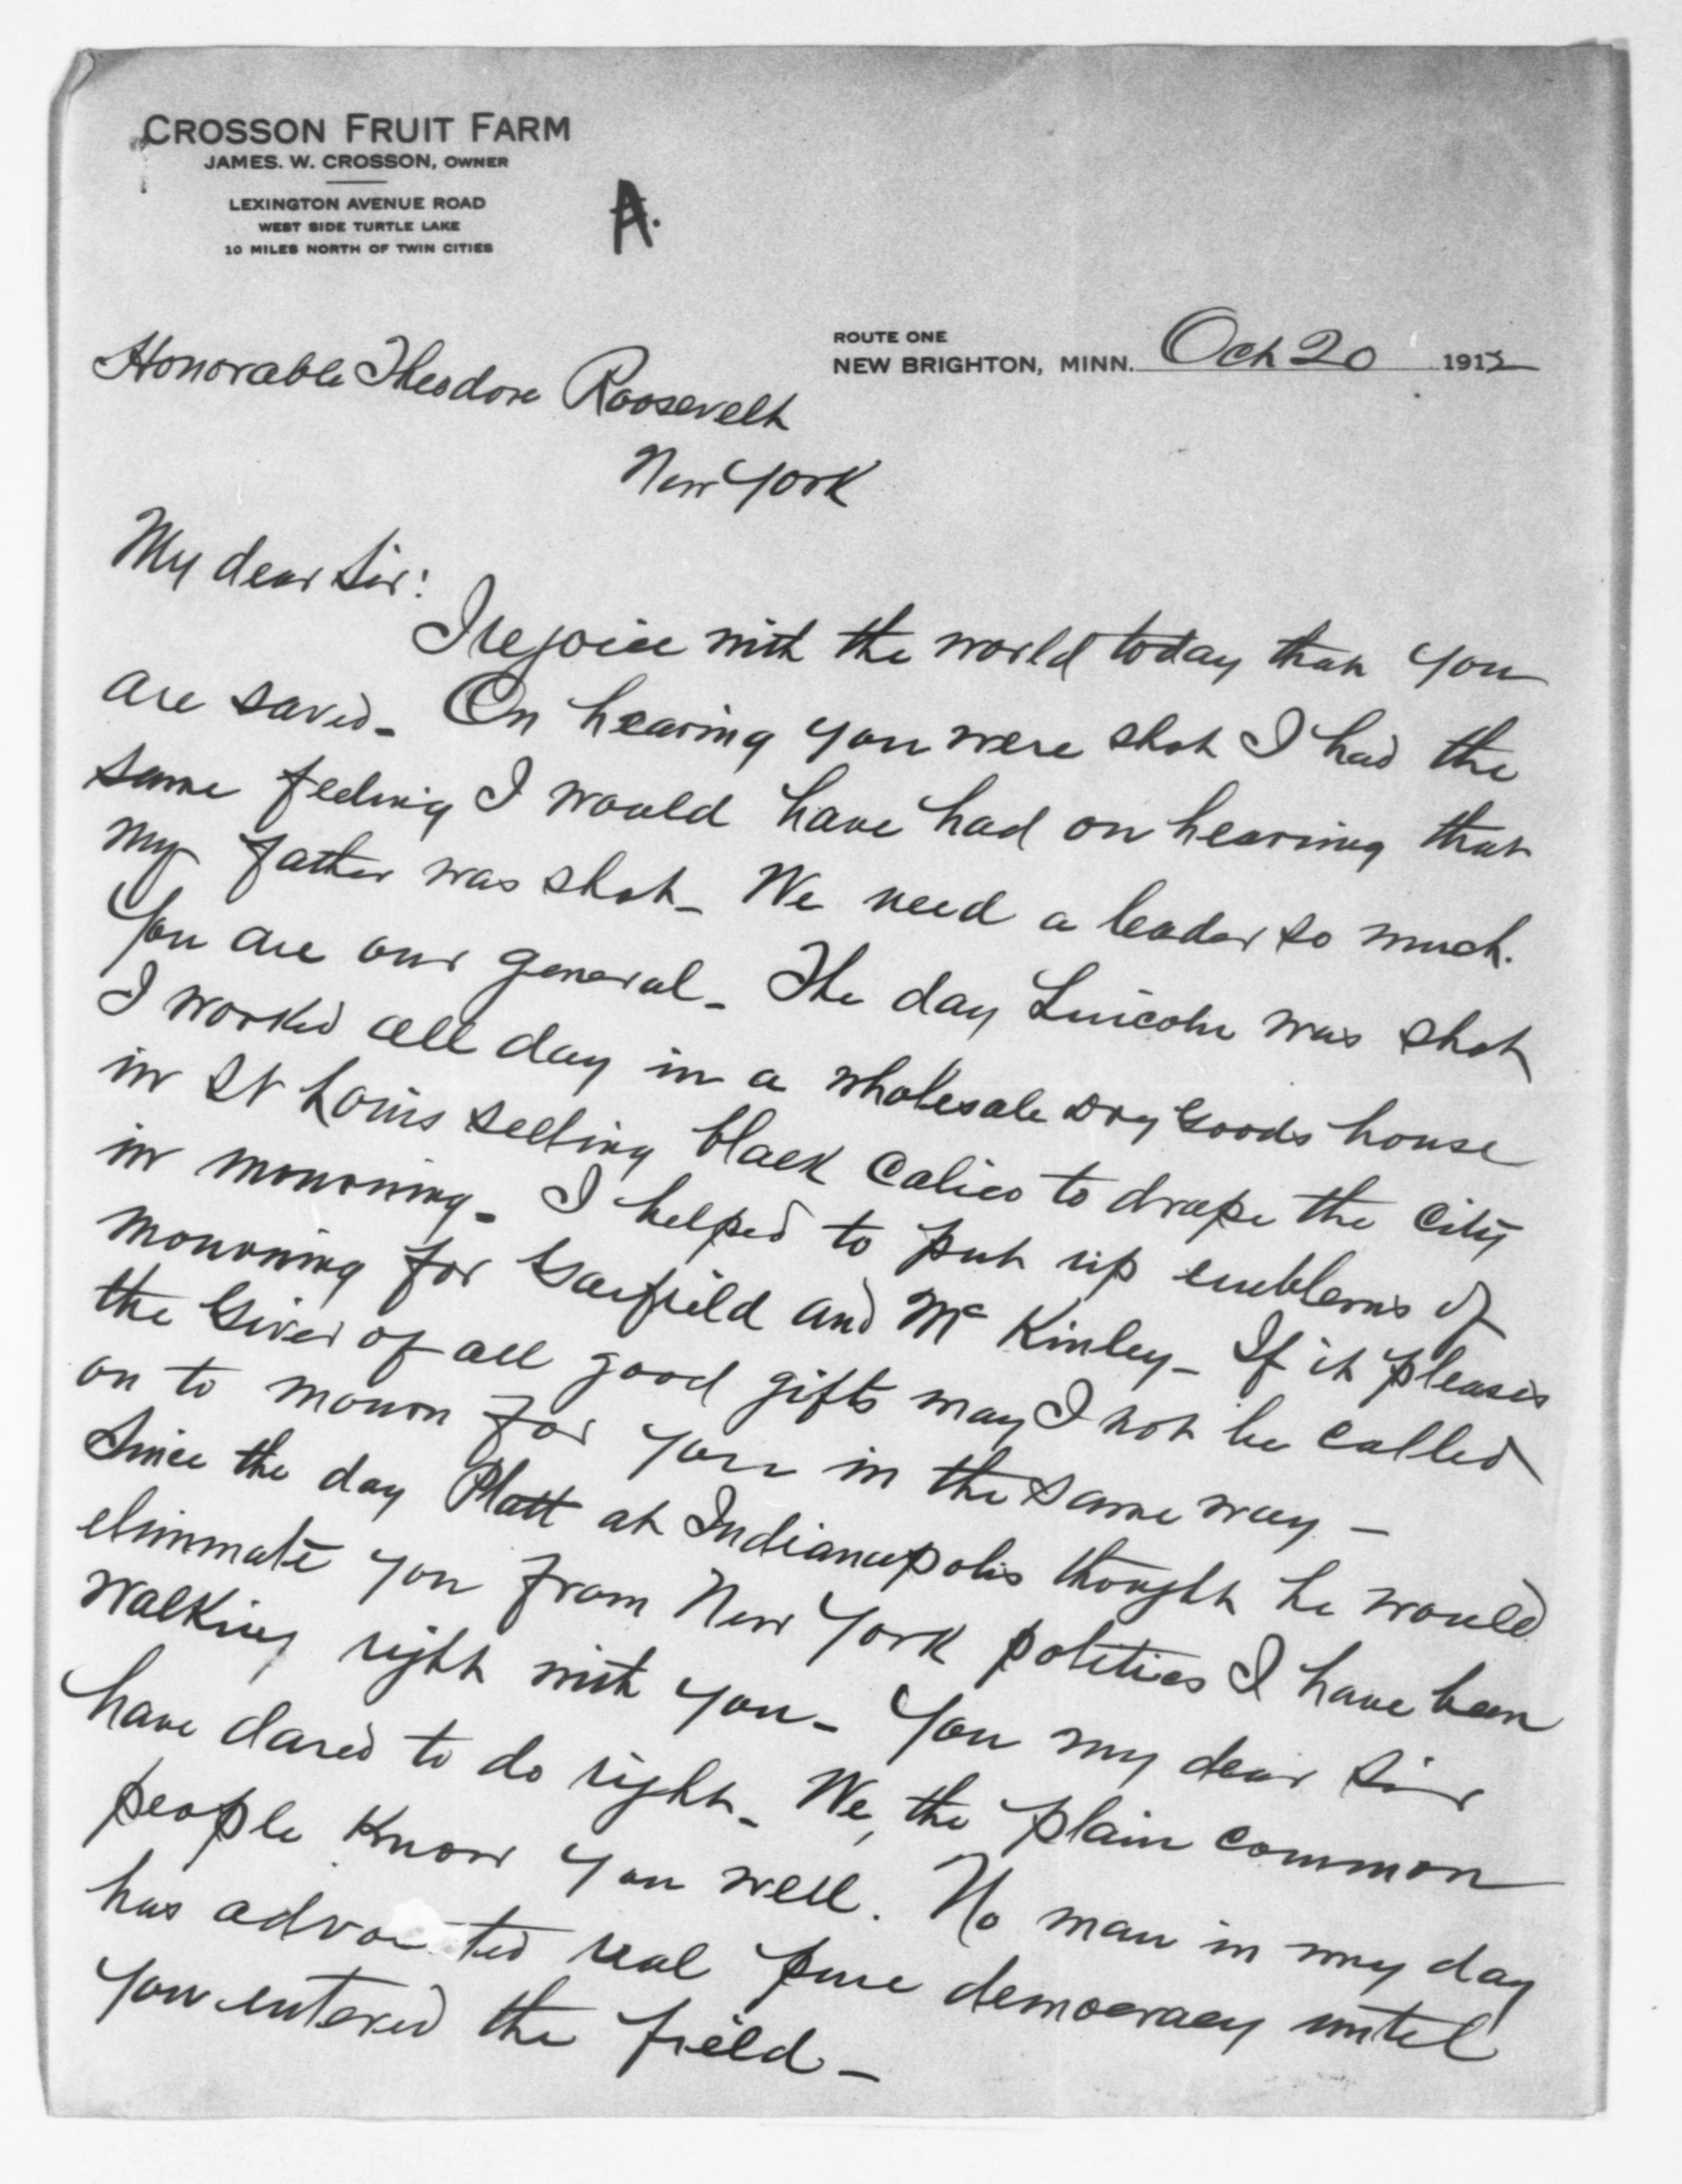 CROSSON FRUIT FARM
JAMES. W. CROSSON, OWNER
LEXINGTON AVENUE ROAD
WEST SIDE TURTLE LAKE
10 MILES NORTH OF TWIN CITIES
A.
ROUTE ONE
NEW BRIGHTON, MINN. Oct 20 1912
Honorable Theodore Roosevelt
New York
My dear Sir:
I rejoice with the world today that you
are saved- On hearing you were shot I had the
same feeling I would have had on hearing that
my father was shot- We need a leader so much.
You are our general- The day Lincoln was shot
I worked all day in a wholesale Dry Goods house
in St Louis selling black calico to drape the city
in mourning- I helped to put up emblems of
mourning for Garfield and McKinley- If it pleases
the Giver of all good gifts may I not be called
on to mourn for you in the same way-
Since the day Platt at Indianapolis thought he would
eliminate you from New York politics I have been
walking right with you- You my dear Sir
have dared to do right- We, the plain common
people know you well. No man in my day
has advocated real pure democracy until
you entered the field-